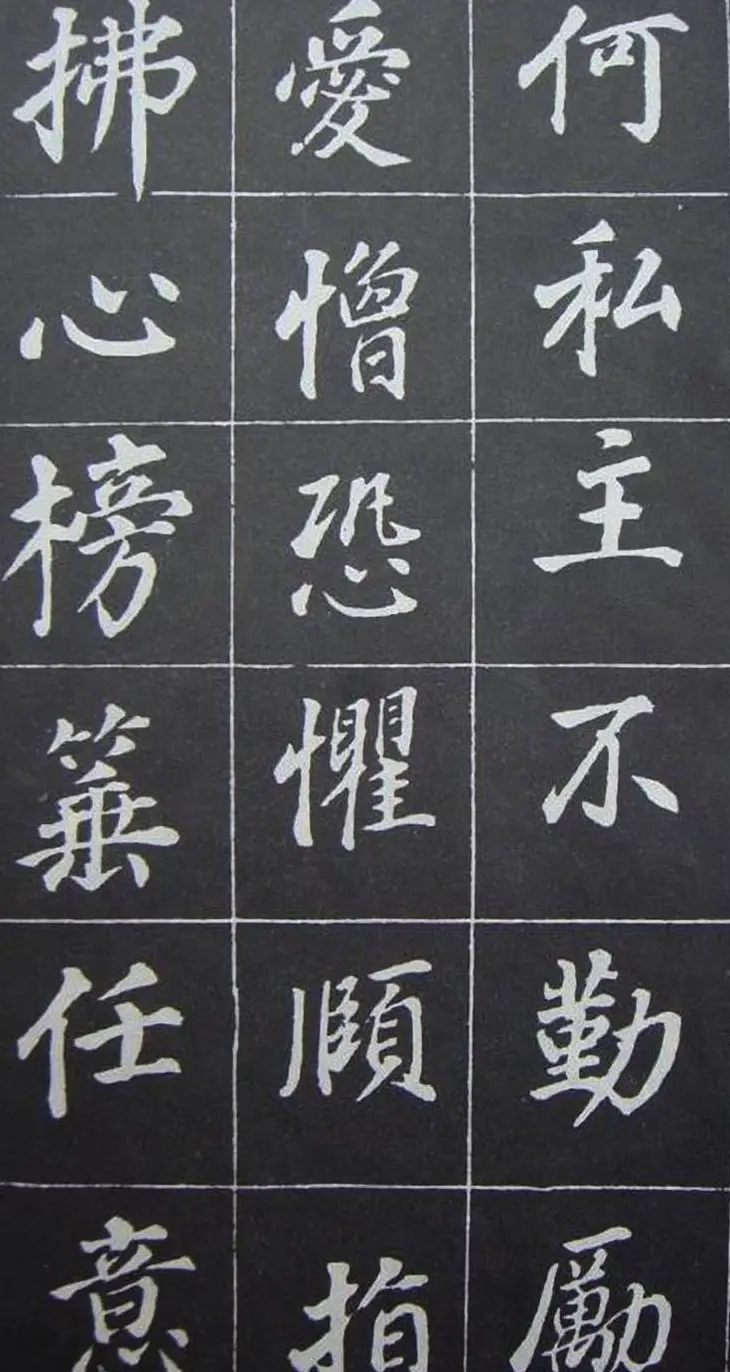 何私主不勤勵
愛憎恐懼順指
拂心榜箠任意